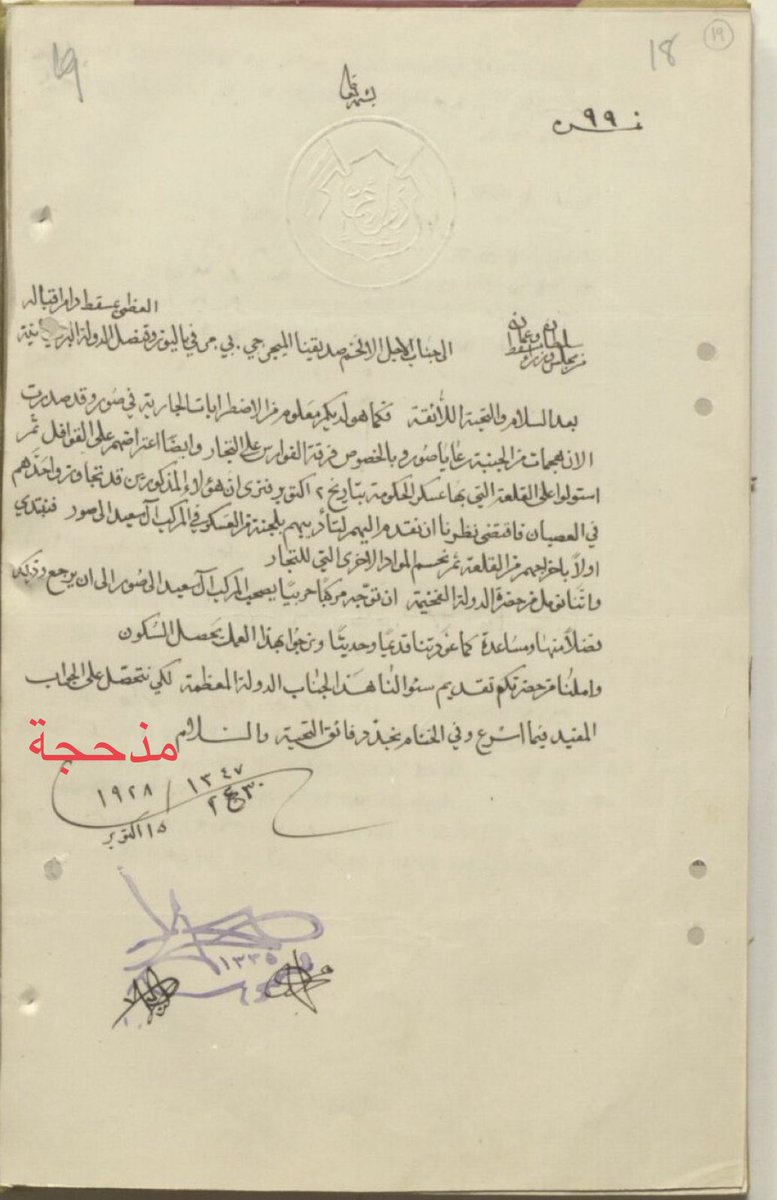 ١٩
18
19
بسمه تعالى
نمره ٩٩
العظمى بمسقط دام اقباله
سلطان
مسقط وعمان
من مجلس وزراء
الى جناب الاجل الافخم صديقنا الميجر جي. بي. مرفي باليوز وقنصل الدولة البريطانية
بعد السلام والتحية اللائقة فكما هو لديكم معلوم من الاضطرابات الجارية في صور وقد صدرت
الان هجمات من الجنبية رعايا صور وبالخصوص فرقة الفوارس على التجار وايضا اعتراضهم على القوافل ثم
استولوا على القلعة التي بها عسكر الحكومة بتاريخ ٢ اكتوبر فنرى ان هؤلاء المذكورين قد تجاوزوا حدهم
في العصيان فاقتضى نظرنا ان نقدم اليهم لتأديبهم بلجنة من العسكر في المركب آل سعيد الى صور فنبتدي
اولاً باخراجهم من القلعة ثم نحسم المواد الاخرى التي للتجار
واننا نؤمل من حضرة الدولة الفخيمة ان توجه مركبا حربيا يصحب المركب آل سعيد الى صور الى ان يرجع وذلك
تفضلاً منها ومساعدة كما عودتنا قديما وحديثا ونرجوا بهذا العمل يحصل السكون
واملنا من حضرتكم تقديم سئوالنا هذا لجناب الدولة المعظمة لكي نتحصل على الجواب
المفيد فيما اسرع وفي الختام نجدد فائق التحية والسلام
مذحجة
١٣٤٧ / ١٩٢٨
٣٠ ع ٢
١٥ اكتوبر
١٣٣٥